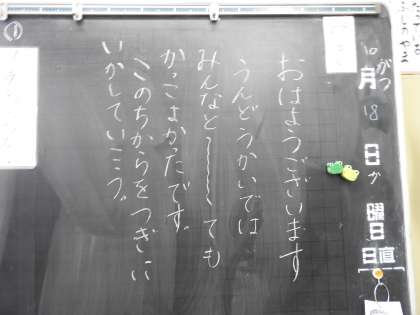 10がつ
月
18
日
か
曜日
日直
おはようございます
うんどうかいでは
みんなと〜〜〜ても
かっこよかったです。
このちからをつぎに
いかしていこう。
①